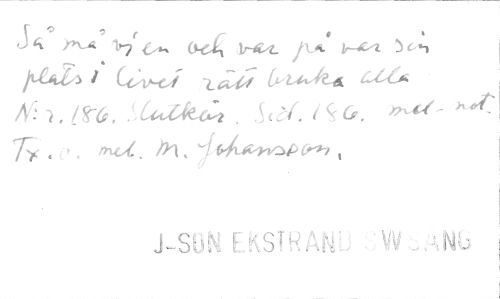 Så må vi en och var på var sin
plats i livet rätt bruka alla
N:r. 186. Slutkör. Sid. 186. mel. not.
Tx. o. mel. M. Johansson.
J-SON EKSTRAND SW SÅNG